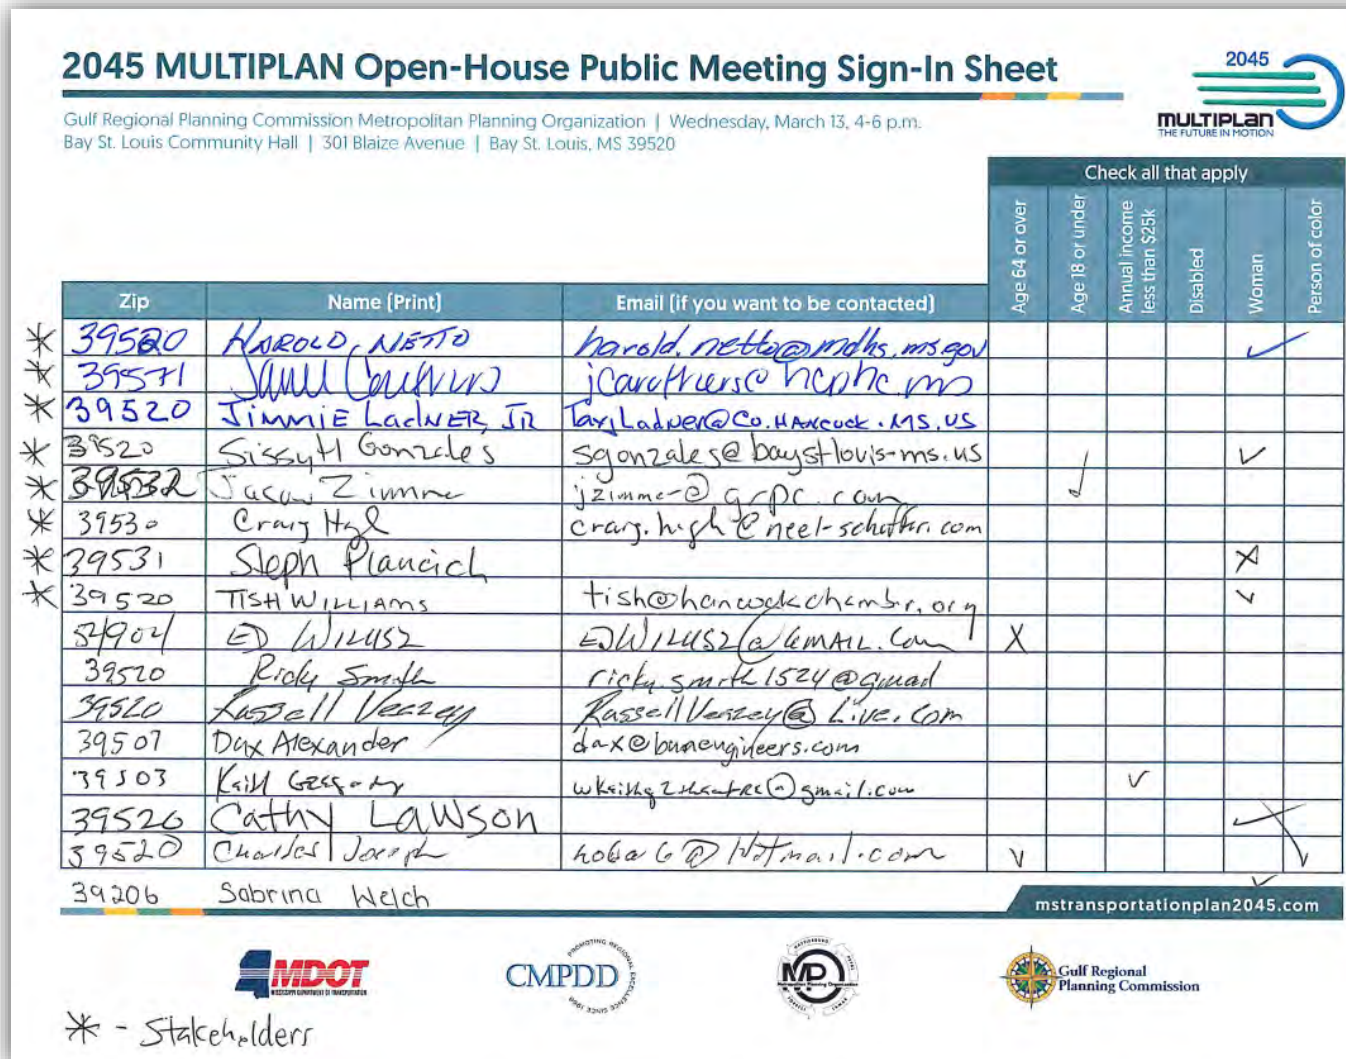 2045 MULTIPLAN Open-House Public Meeting Sign-In Sheet
2045
MULTIPLAN
THE FUTURE IN MOTION
Gulf Regional Planning Commission Metropolitan Planning Organization | Wednesday, March 13, 4-6 p.m.
Bay St. Louis Community Hall | 301 Blaize Avenue | Bay St. Louis, MS 39520
Check all that apply
Zip Name (Print) Email (if you want to be contacted) Age 64 or over Age 18 or under Annual income less than $25k Disabled Woman Person of color
* 39520 HAROLD NETTO harold.netto@mdhs.ms.gov ✓
* 39571 jcaruthers@hcphc.ms
* 39520 JIMMIE LadNER, JR Tax,Ladner@Co.HANCOCK.MS.US
* 39520 Sissy H Gonzales sgonzales@baystlouis-ms.us ✓
* 39532 Jason Zimme jzimmer@grpc.com ✓
* 39530 Craig craig.high@neel-schaffer.com
* 39531 Steph Plancich X
* 39520 TISH WILLIAMS tish@hancockchambr.org ✓
54904 ED WILUSZ EDWILUSZ@GMAIL.Com X
39520 Ricky Smith ricky.smith1524@gmail
39520 Russell Veazey RussellVeazey@Live.com
39507 Dax Alexander dax@bmnengineers.com
39503 Keith Gregory wkeithg2theatre@gmail.com ✓
39520 Cathy LAWSON ✓
39520 Charles Joseph hoba6@Hotmail.com ✓ ✓
39206 Sabrina Welch ✓
mstransportationplan2045.com
MDOT
MISSISSIPPI DEPARTMENT OF TRANSPORTATION
PROMOTING REGIONAL EXCELLENCE
CMPDD
SINCE 1968
MPO
Metropolitan Planning Organization
Gulf Regional
Planning Commission
* - Stakeholders